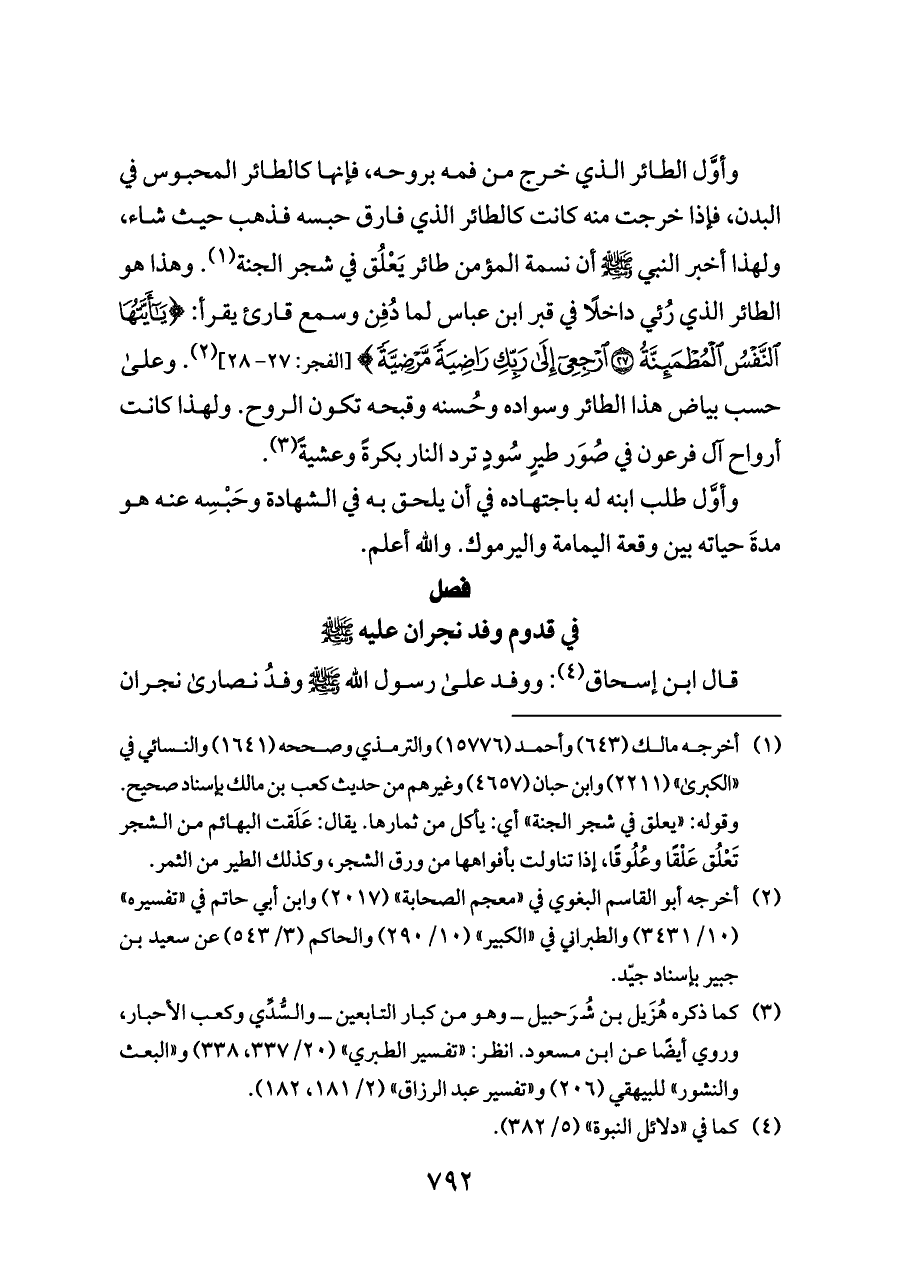 وأوَّل الطائر الذي خرج من فمه بروحه، فإنها كالطائر المحبوس في
البدن، فإذا خرجت منه كانت كالطائر الذي فارق حبسه فذهب حيث شاء،
ولهذا أخبر النبي ﷺ أن نسمة المؤمن طائر يَعْلُق في شجر الجنة(١). وهذا هو
الطائر الذي رُئي داخلًا في قبر ابن عباس لما دُفِن وسمع قارئ يقرأ: ﴿يَٰٓأَيَّتُهَا
ٱلنَّفْسُ ٱلْمُطْمَئِنَّةُ ۝٢٧ ٱرْجِعِىٓ إِلَىٰ رَبِّكِ رَاضِيَةً مَّرْضِيَّةً﴾ [الفجر: ٢٧- ٢٨](٢). وعلىٰ
حسب بياض هذا الطائر وسواده وحُسنه وقبحه تكون الروح. ولهذا كانت
أرواح آل فرعون في صُوَر طيرٍ سُودٍ ترد النار بكرةً وعشيةً(٣).
وأوَّل طلب ابنه له باجتهاده في أن يلحق به في الشهادة وحَبْسِه عنه هو
مدةَ حياته بين وقعة اليمامة واليرموك. والله أعلم.
فصل
في قدوم وفد نجران عليه ﷺ
قال ابن إسحاق(٤): ووفد علىٰ رسول الله ﷺ وفدُ نصارىٰ نجران
(١) أخرجه مالك (٦٤٣) وأحمد (١٥٧٧٦) والترمذي وصححه (١٦٤١) والنسائي في
«الكبرىٰ» (٢٢١١) وابن حبان (٤٦٥٧) وغيرهم من حديث كعب بن مالك بإسناد صحيح.
وقوله: «يعلق في شجر الجنة» أي: يأكل من ثمارها. يقال: عَلَقت البهائم من الشجر
تَعْلُق عَلْقًا وعُلُوقًا، إذا تناولت بأفواهها من ورق الشجر، وكذلك الطير من الثمر.
(٢) أخرجه أبو القاسم البغوي في «معجم الصحابة» (٢٠١٧) وابن أبي حاتم في «تفسيره»
(١٠/ ٣٤٣١) والطبراني في «الكبير» (١٠/ ٢٩٠) والحاكم (٣/ ٥٤٣) عن سعيد بن
جبير بإسناد جيّد.
(٣) كما ذكره هُزَيل بن شُرَحبيل ــ وهو من كبار التابعين ــ والسُّدِّي وكعب الأحبار،
وروي أيضًا عن ابن مسعود. انظر: «تفسير الطبري» (٢٠/ ٣٣٧، ٣٣٨) و«البعث
والنشور» للبيهقي (٢٠٦) و«تفسير عبد الرزاق» (٢/ ١٨١، ١٨٢).
(٤) كما في «دلائل النبوة» (٥/ ٣٨٢).
٧٩٢